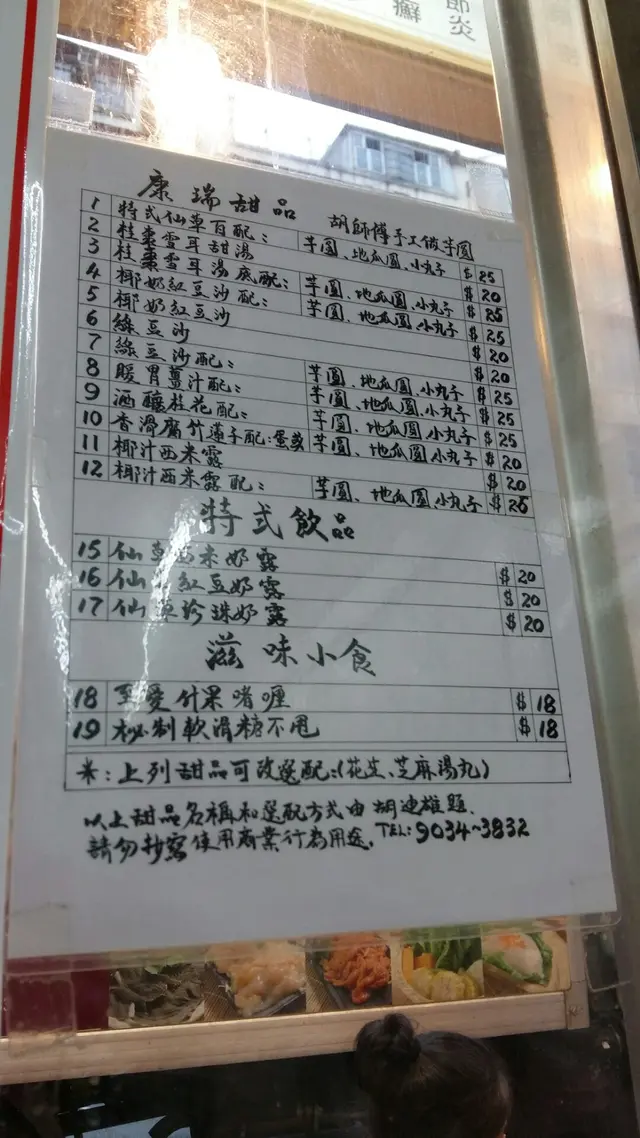 節炎
癬
康瑞甜品 胡師傅手工做芋圓
1 特式仙草百配： 芋圓、地瓜圓、小丸子 $25
2 桂棗雪耳甜湯 $20
3 桂棗雪耳湯底配： 芋圓、地瓜圓、小丸子 $25
4 椰奶紅豆沙配： 芋圓、地瓜圓、小丸子 $25
5 椰奶紅豆沙 $20
6 綠豆沙 $20
7 綠豆沙配： 芋圓、地瓜圓、小丸子 $25
8 暖胃薑汁配： 芋圓、地瓜圓、小丸子 $25
9 酒釀桂花配： 芋圓、地瓜圓、小丸子 $20
10 香滑腐竹蓮子配：
11 椰汁西米露 $20
12 椰汁西米露配： 芋圓、地瓜圓、小丸子 $25
特式飲品
15 仙草西米奶露 $20
16 仙草紅豆奶露 $20
17 仙草珍珠奶露 $20
滋味小食
18 至愛什果啫喱 $18
19 秘制軟滑糖不甩 $18
*：上列甜品可改選配：(花生、芝麻湯丸)
以上甜品名稱和選配方式由胡迪雄題．
請勿抄寫使用商業行為用途．TEL：9034~3832